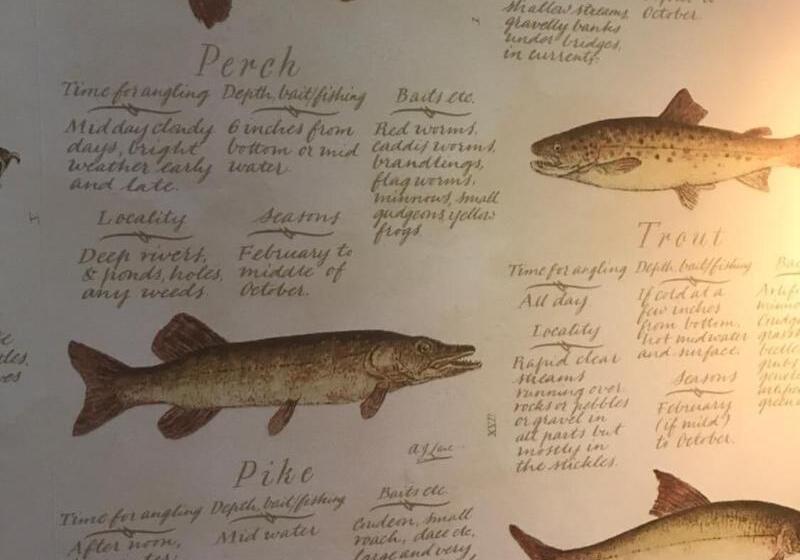 shallow streams,
gravelly banks
under bridges,
in currents.
October.
Perch
Time for angling
Mid day cloudy
days, bright
weather early
and late.
Depth, bait/fishing
6 inches from
bottom or mid
water
Baits etc.
Red worms,
caddis worms,
brandlings,
flag worms,
minnows, small
gudgeons yellow
frogs
Locality
Deep rivers,
& ponds, holes,
any weeds.
Seasons
February to
middle of
October.
Trout
Time for angling
All day
Depth, bait/fishing
If cold at a
few inches
from bottom,
hot midwater
and surface.
Locality
Rapid clear
streams
running over
rocks or pebbles
or gravel in
all parts but
mostly in
the stickles.
Seasons
February
(if mild)
to October.
XVII
A J Lane
Pike
Time for angling
After noon,
Depth, bait/fishing
Mid water
Baits etc
Gudeon, small
roach, dace etc,
large and very